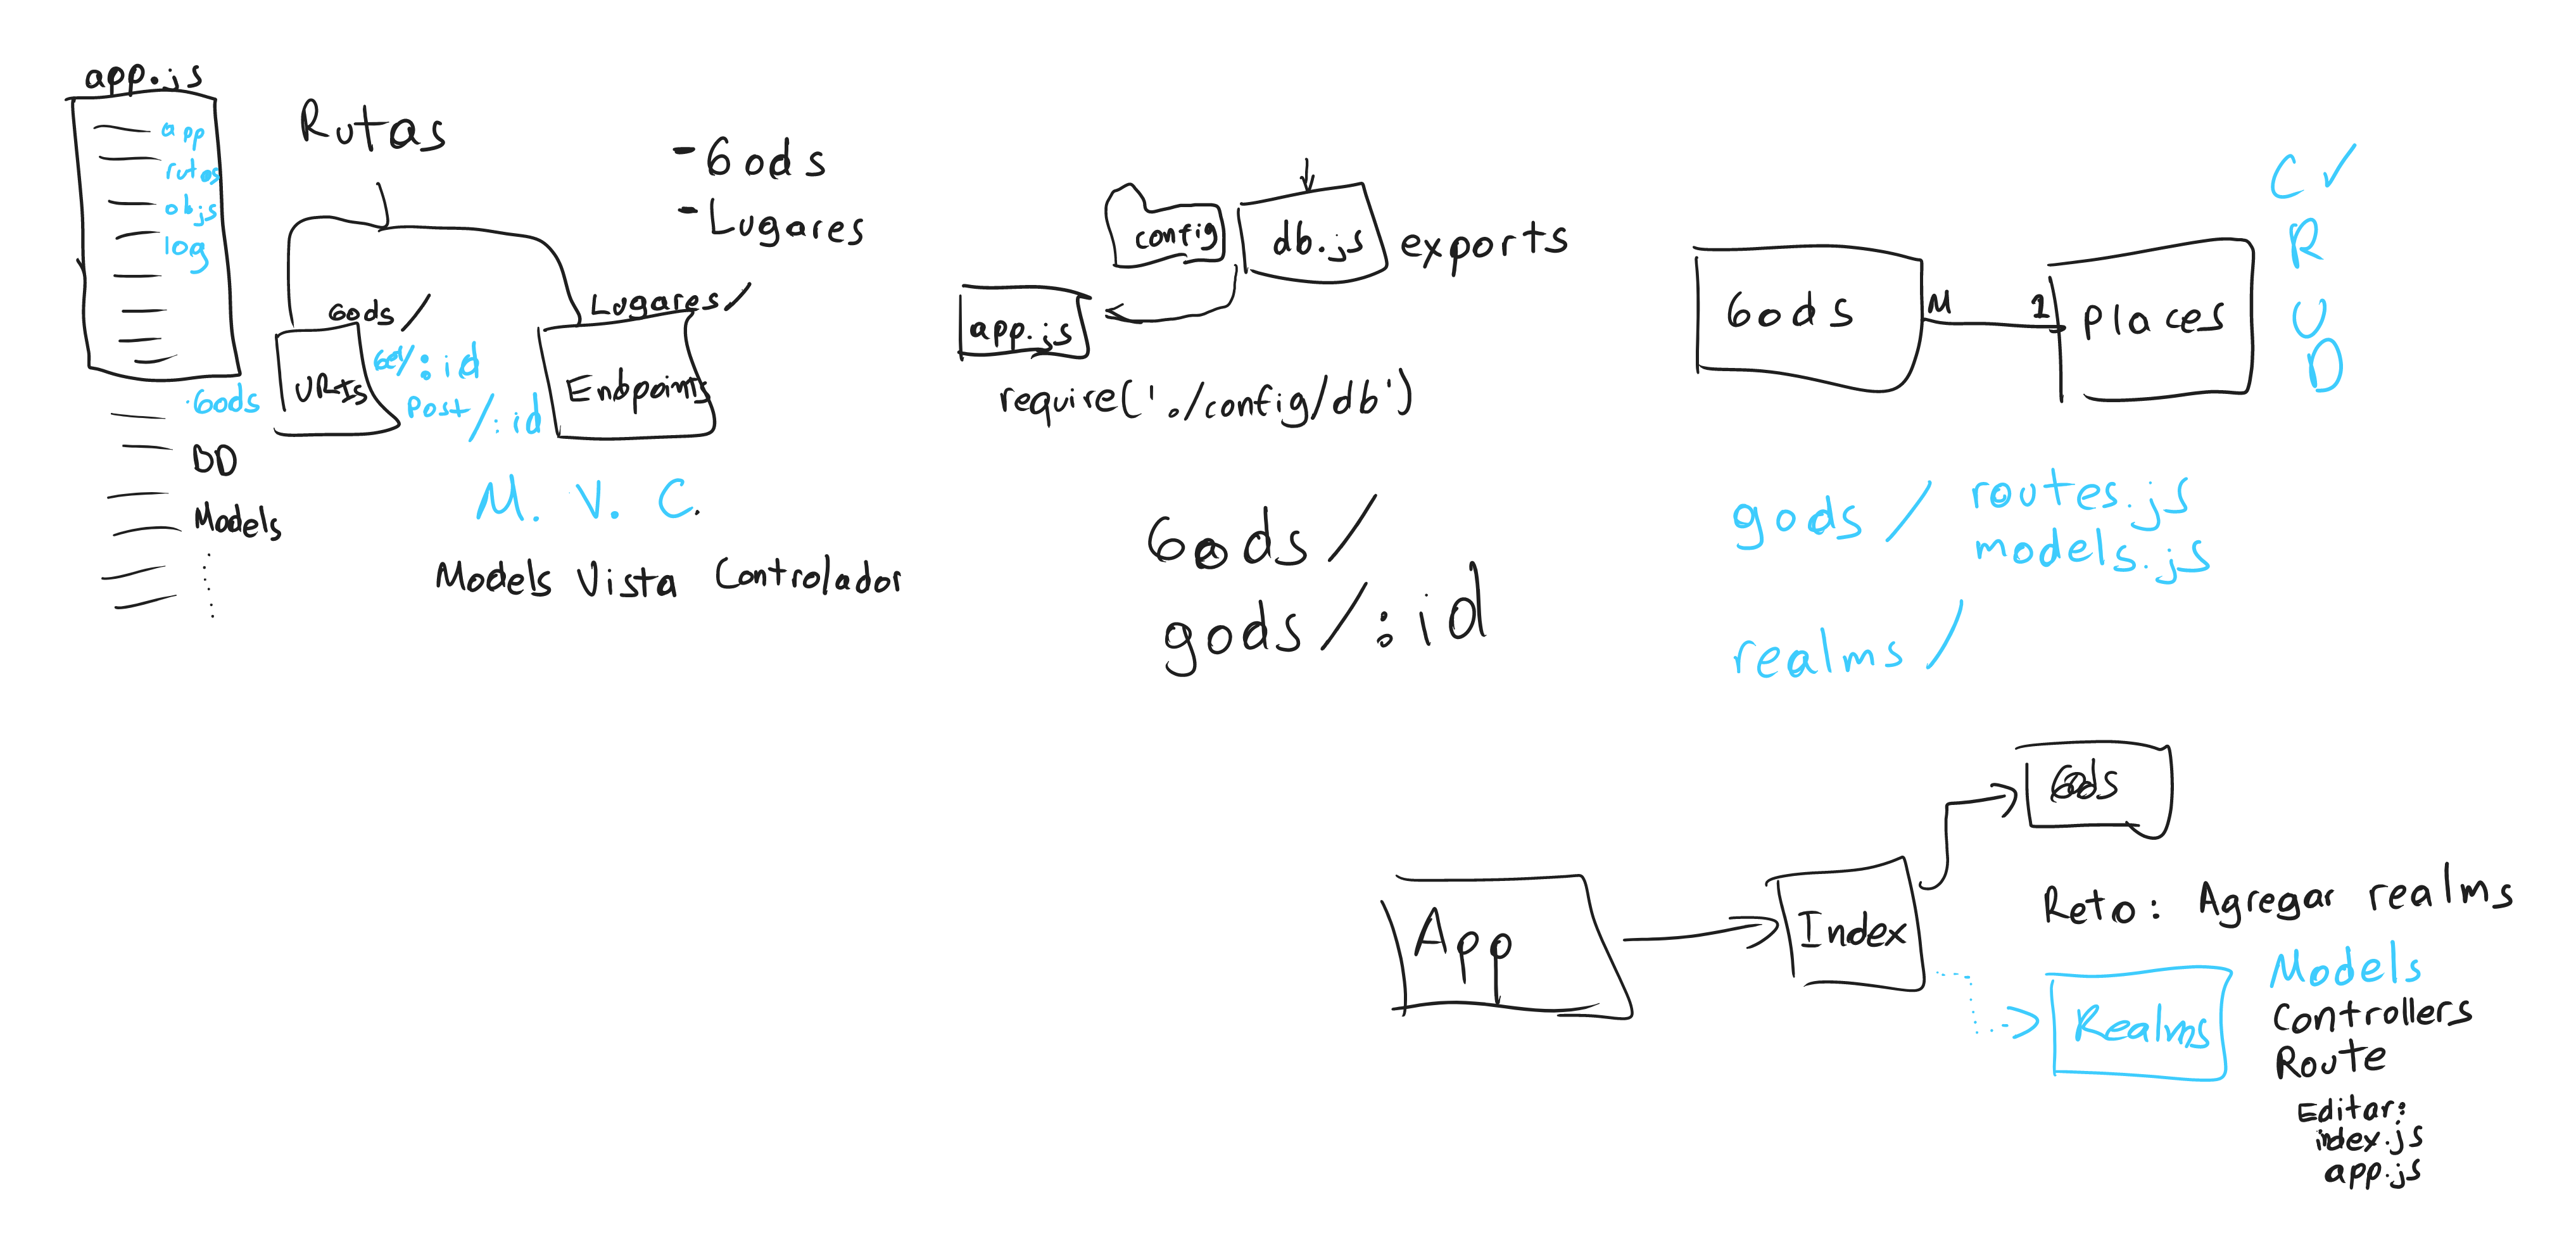 app.js
app
rutas
objs
log
Rutas
- Gods
- Lugares
Gods /
URIs
Get/:id
Post/:id
Lugares/
Endpoints
.Gods
BD
Models
M. V. C.
Models Vista Controlador
config
db.js
exports
app.js
require('./config/db')
Gods /
gods/:id
Gods
M
1
Places
C ✓
R
U
D
gods / routes.js
models.js
realms /
App
Index
Gods
Reto: Agregar realms
Realms
Models
Controllers
Route
Editar:
index.js
app.js